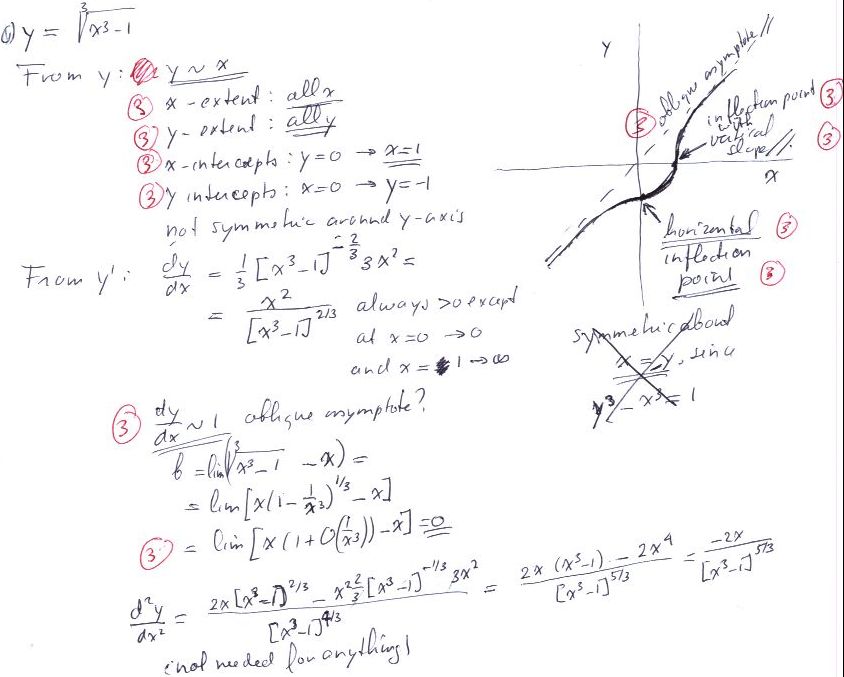 y = ∛(x³-1)
From y: y ~ x
③ x-extent: all x
③ y-extent: all y
③ x-intercepts: y=0 → x=1
③ y intercepts: x=0 → y=-1
not symmetric around y-axis
From y': dy/dx = 1/3 [x³-1]^(-2/3) 3x² =
= x²/[x³-1]^(2/3) always >0 except
at x=0 → 0
and x = 1 → ∞
③ dy/dx ~ 1 oblique asymptote?
b = lim(∛(x³-1) - x) =
= lim[x(1-1/x³)^(1/3) - x]
③ = lim[x(1+O(1/x³))-x] = 0
d²y/dx² = (2x[x³-1]^(2/3) - x² 2/3 [x³-1]^(-1/3) 3x²)/[x³-1]^(4/3) = (2x(x³-1) - 2x⁴)/[x³-1]^(5/3) = -2x/[x³-1]^(5/3)
(not needed for anything)
y
③ oblique asymptote //
inflection point ③
with
vertical
slope // ③
x
horizontal ③
inflection
point ③
symmetric about
x = -y, since
y³ - x³ = 1